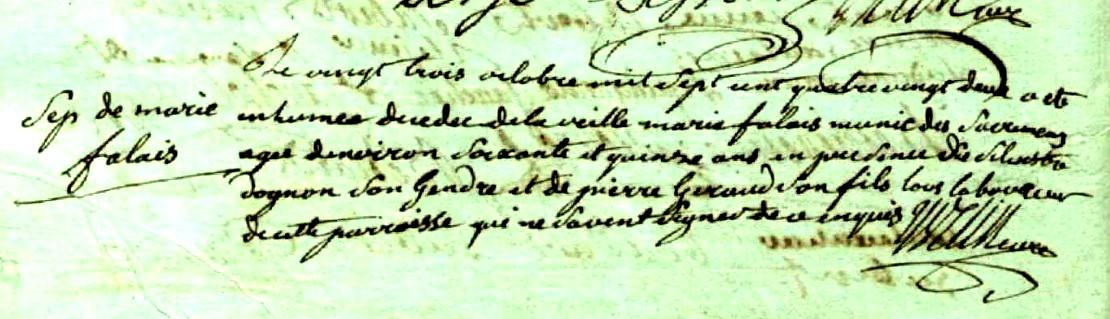 Le vingt trois octobre mil sept cent quatre vingt deux a ete
Sep de marie
falais
inhumee decedee de la veille marie falais munie des sacremens
agee denviron soixante et quinze ans en presence de silvestre
dognon son gendre et de pierre Geraud son fils tous laboureur
de cette parroisse qui ne savent signer de ce enquis